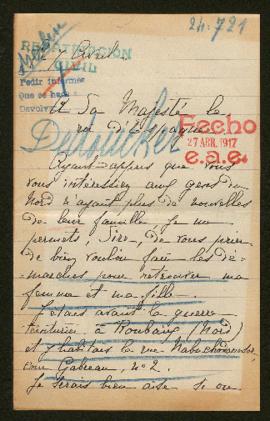 24.721
REPATRIACION
CIVIL
12 Avril
Pedir informes
Que se haga
Devolver
A Sa Majesté le
roi d'Espagne
Fecho
27 ABR. 1917
e.a.e.
Dedoncker
Ayant appris que vous
vous intéressiez aux gens du
Nord n'ayant plus de nouvelles
de leur famille je me
permets, Sire, de vous prier
de bien vouloir faire les dé-
marches pour retrouver ma
femme et ma fille.
J'étais avant la guerre
teinturier à Roubaix (Nord)
et j'habitais la rue Nabuchodonosor,
cour Gabreau, nº 2.
Je serais bien aise si on